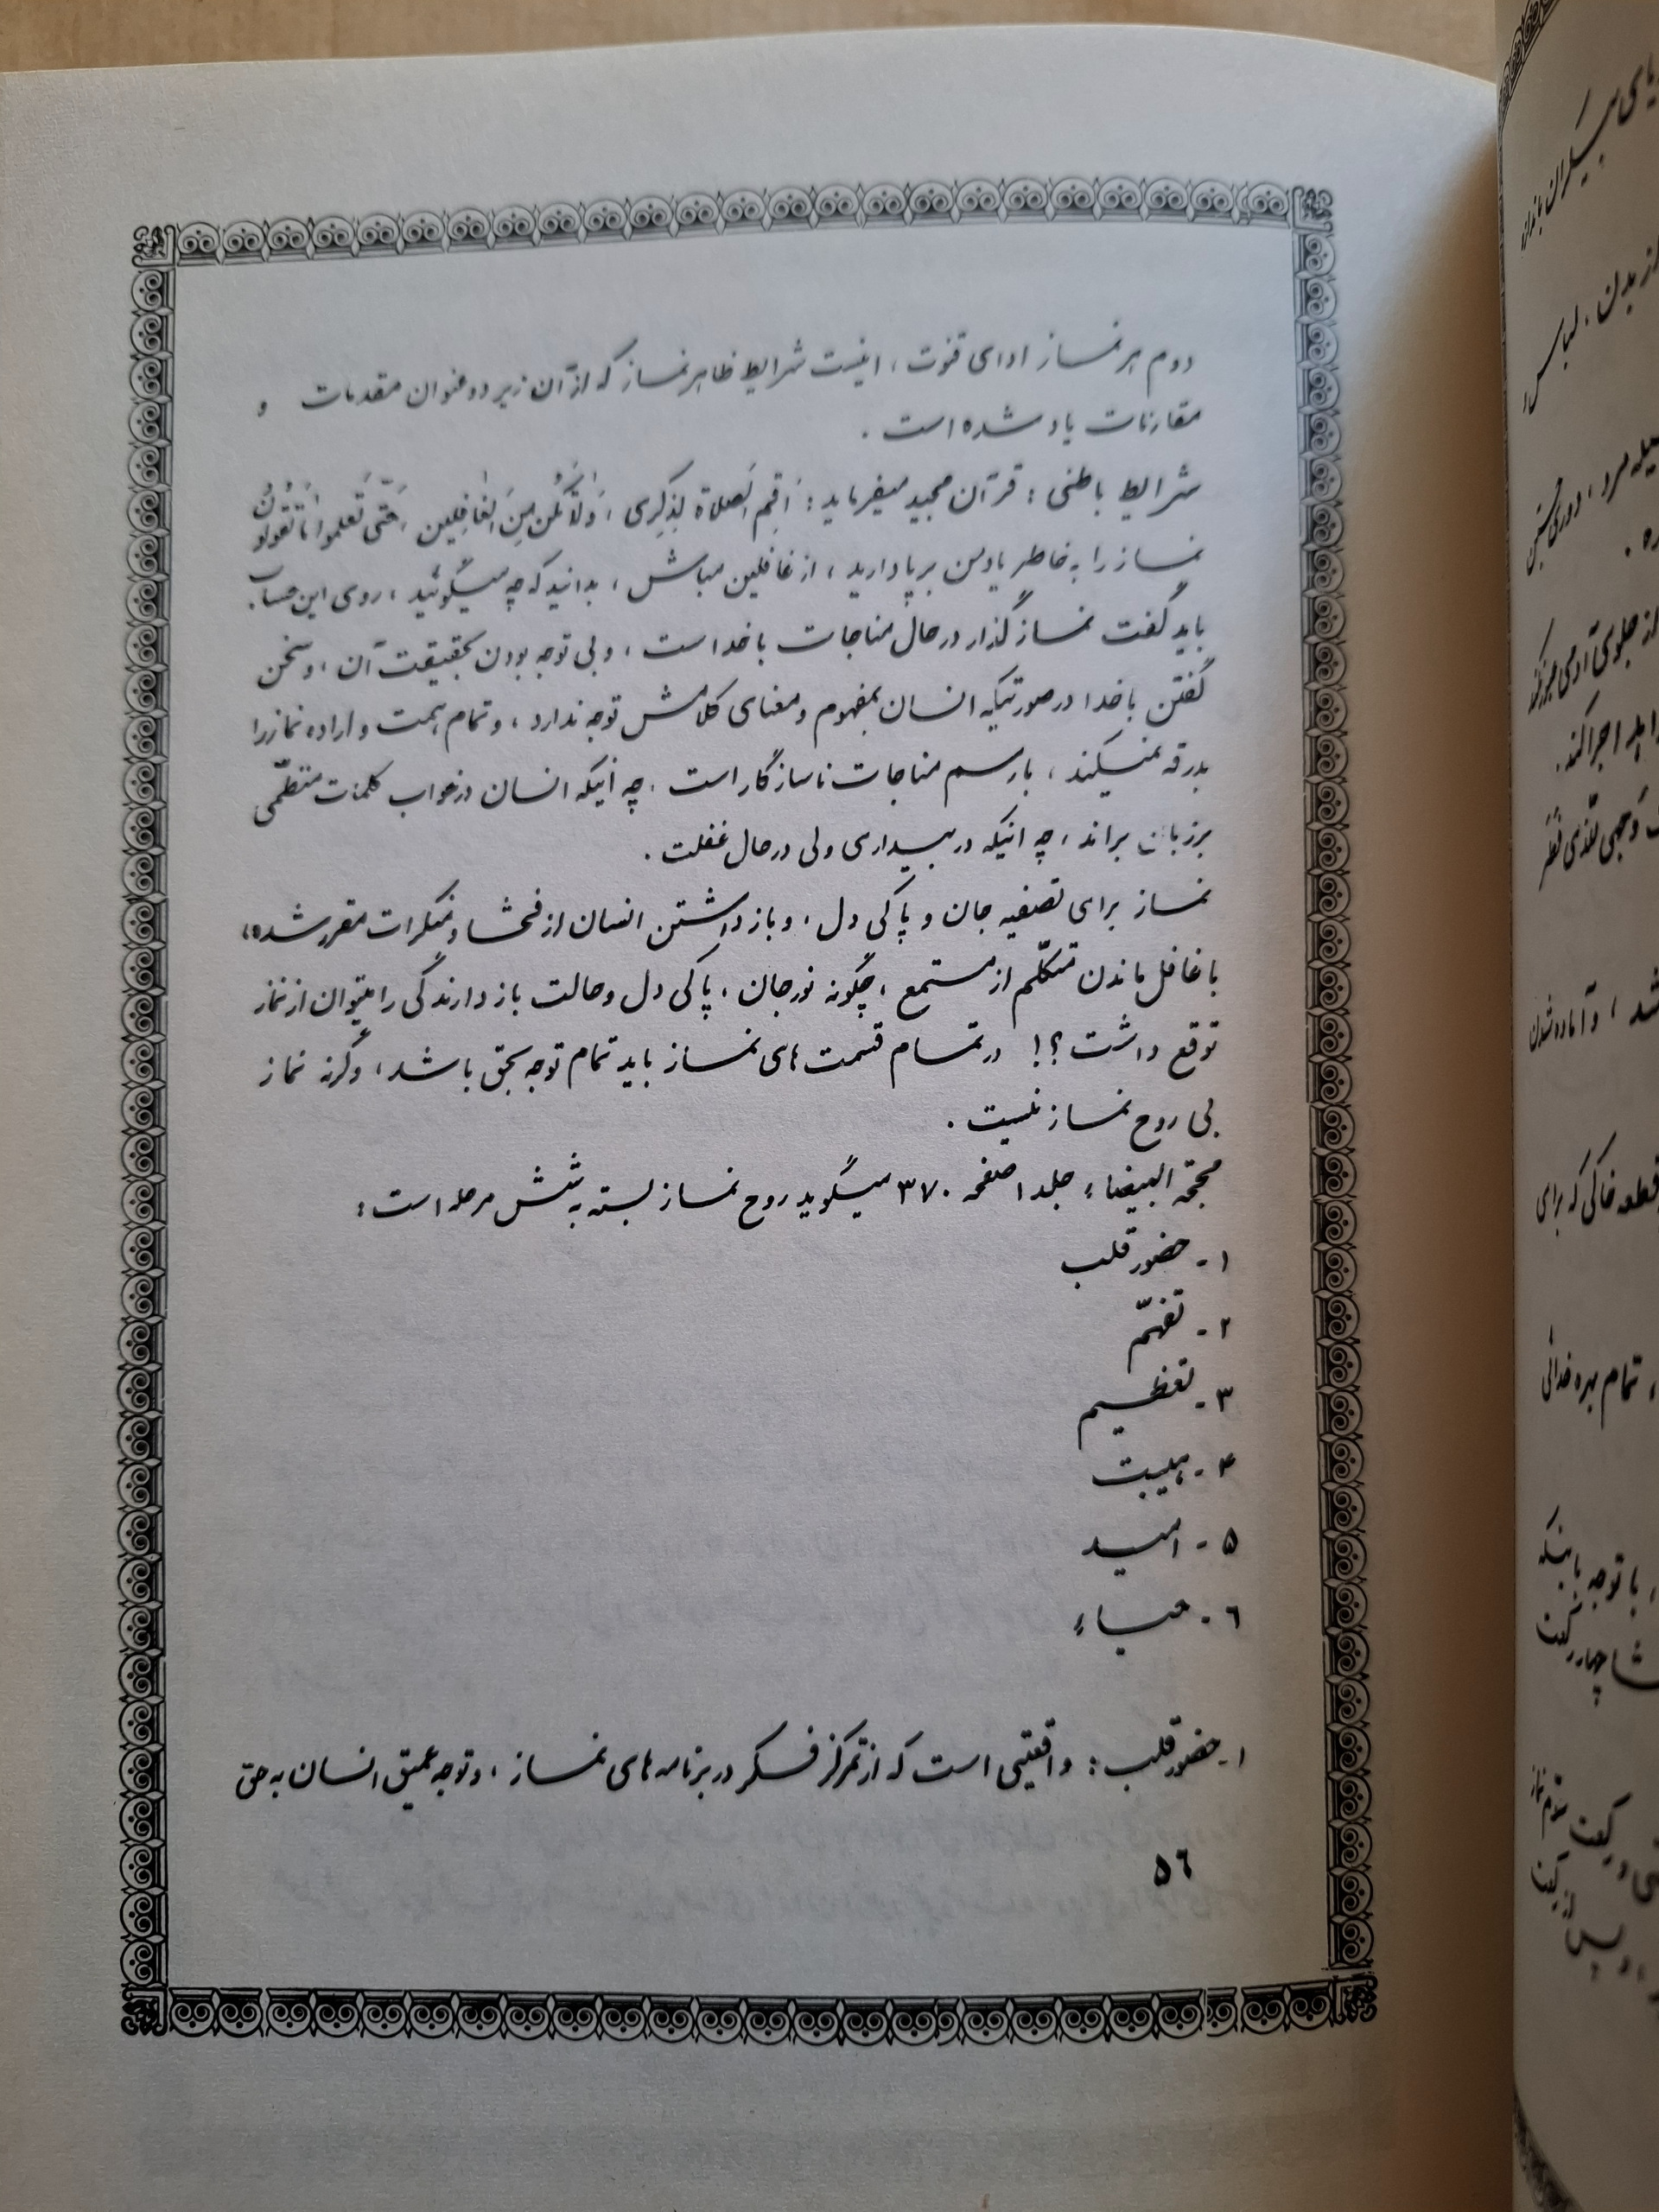 دوم هر نماز ادای قنوت، اینست شرایط ظاهر نماز که از آن زیر دو عنوان مقدمات و
مقارنات یاد شده است.
شرایط باطنی: قرآن مجید میفرماید: اَقِمِ الصَلاةَ لِذِکِری، وَلاٰتَکُنْ مِنَ الغٰافِلین، حَتّیٰ تَعلَموا مٰا تَقُولُونَ
نماز را به خاطر یاد من برپا دارید، از غافلین مباش، بدانید که چه میگوئید، روی این حساب
باید گفت نمازگذار در حال مناجات با خدا است، و بی توجه بودن بحقیقت آن، و سخن
گفتن با خدا در صورتیکه انسان بمفهوم و معنای کلامش توجه ندارد، و تمام همت و اراده نماز را
بدرقه نمیکند، با رسم مناجات ناسازگار است. چه اینکه انسان در خواب کلمات منظّمی
بر زبان براند، چه اینکه در بیداری ولی در حال غفلت.
نماز برای تصفیه جان و پاکی دل، و باز داشتن انسان از فحشا و منکرات مقرر شده،
با غافل ماندن متکلّم از مستمع، چگونه نور جان، پاکی دل و حالت باز دارندگی را میتوان از نماز
توقع داشت؟! در تمام قسمت های نماز باید تمام توجه بحق باشد، وگرنه نماز
بی روح نماز نیست.
محجّة البیضاء جلد ۱ صفحه ۳۷۰ میگوید روح نماز بسته به شش مرحله است:
۱- حضور قلب
۲- تفهّم
۳- تعظیم
۴- هیبت
۵- امید
۶- حیاء
۱- حضور قلب: واقعیتی است که از تمرکز فکر در برنامه های نماز، و توجه عمیق انسان به حق
۵۶